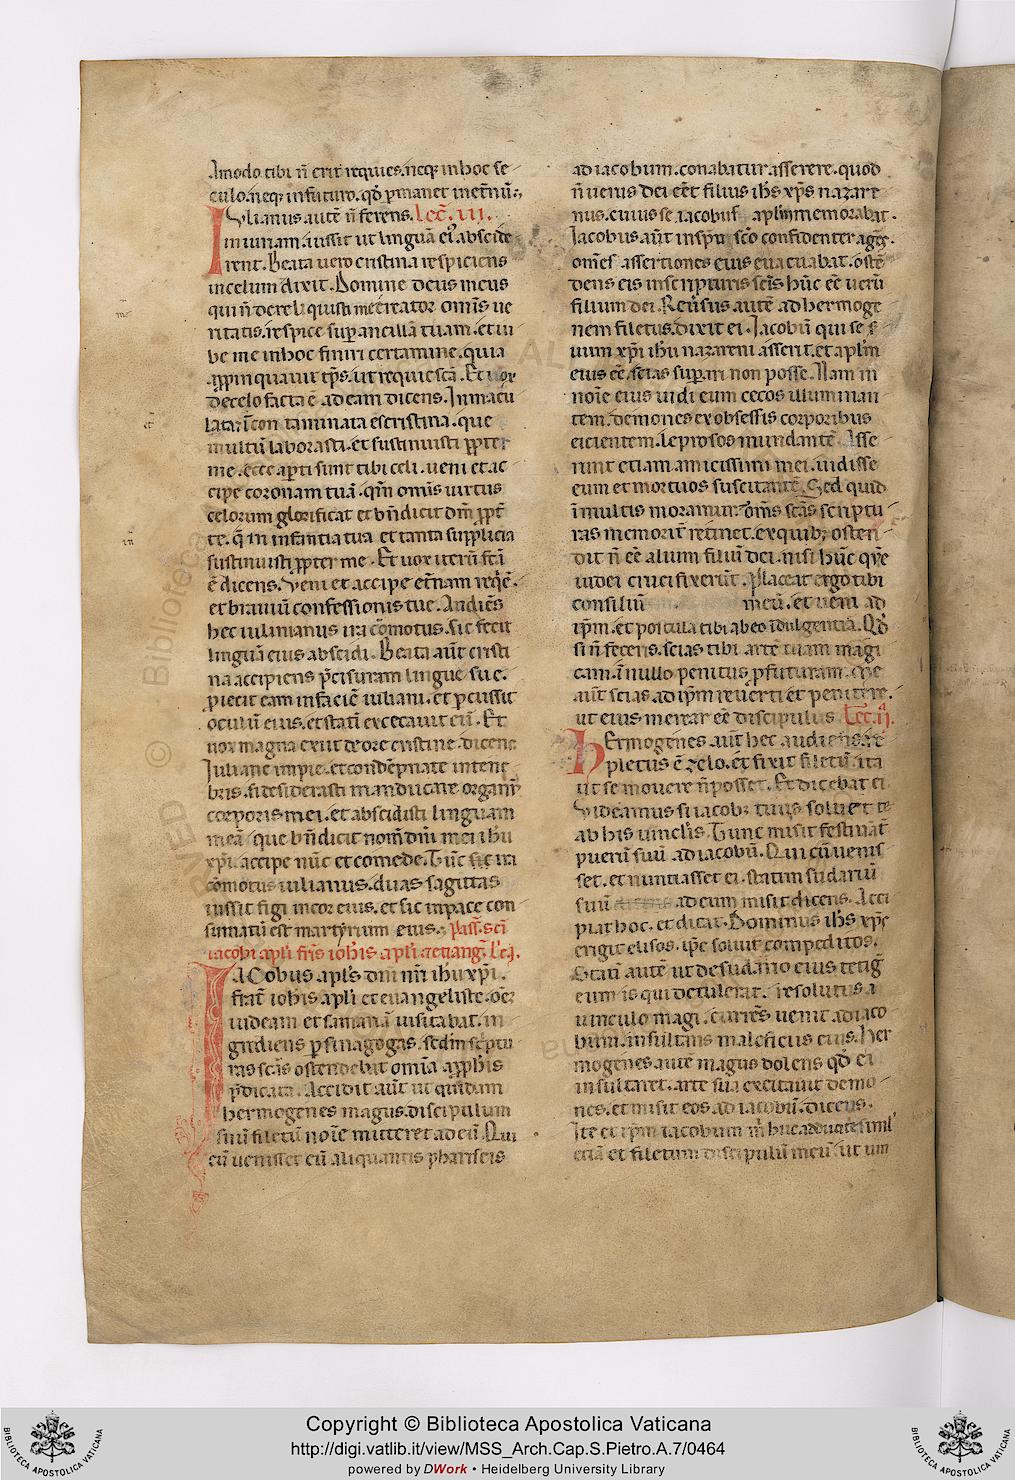 Amodo tibi ñ erit requies. neq; in hoc se
culo. neq; in futuro. qđ pmanet in et̃nũ.
Iulianus autẽ ñ ferens. Lec̃. III.
iniuriam. iussit ut linguã ei9 abscide
rent. Beata uero cristina respiciens
in celum dixit. Domine deus meus
qui ñ dereliquisti me creator om̃is ue
ritatis. respice sup ancillã tuam. et iu
be me in hoc finiri certamine. quia
appinquauit tp̃s. ut requiescã. Et uox
de celo facta ẽ ad eam dicens. Inmacu
lata. ĩcontaminata es cristina. que
multũ laborasti. et sustinuisti ppter
me. ecce apti sunt tibi celi. ueni et ac
cipe coronam tuã. qm̃ om̃is uirtus
celorum glorificat et bñdicit dm̃ ppt̃
te. q̃ in infantia tua et tanta supplicia
sustinuisti ppter me. Et uox iterũ fc̃a
ẽ dicens. Veni et accipe et̃nam req̃ẽ.
et brauiũ confessionis tue. Audiẽs
hec iulinianus ira cõmotus. sic fecit
linguã eius abscidi. Beata aũt cristi
na accipiens p̃cisuram lingue sue.
piecit eam in faciẽ iuliani. et pcussit
oculũ eius. et statĩ excecauit eũ. Et
uox magna exiit de ore cristine dicens
Iuliane impie. et condẽpnate intene
bris. si desiderasti manducare organũ
corporis mei. et abscidisti linguam
meã que bñdicit nom̃ dñi mei ihu
xp̃i. accipe nũc et comede. Tũc sic ira
cõmotus iulianus. duas sagittas
iussit figi in cor eius. et sic in pace con
sumatũ est martyrium eius. Pass. sc̃i
iacobi apl̃i fr̃is ioh̃is apl̃i et euang̃. Lc̃ I.
IACobus apl̃s dñi nr̃i ihu xp̃i.
frat̃ ioh̃is apl̃i et euangeliste. oẽ3
iudeam et samariã uisitabat. in
grediens p sinagogas. sedm sc̃ptu
ras sc̃as ostendebat om̃ia a pphis
p̃dicata. Accidit aũt ut quidam
hermogenes magus. discipulum
suũ filetũ noĩe mitteret ad eũ. Qui
cũ uenisset cũ aliquantis phariseis
ad iacobum. conabatur asserere. quod
ñ uerus dei eẽt filius ihs xp̃s nazare
nus. cuius se iacobus aplm memorabat.
Iacobus aũt in spũ sc̃o confidenter agẽs.
om̃es assertiones eius euacuabat. ostẽ
dens eis in sc̃ripturis sc̃is hũc eẽ uerũ
filium dei. Reũsus autẽ ad hermoge
nem filetus. dixit ei. Iacobũ qui se s
uum xp̃i ihu nazareni asserit. et aplm
eius eẽ. scias supari non posse. Nam in
noĩe eius uidi eum cecos illuminan
tem. demones ex obsessis corporibus
eicientem. leprosos mundantẽ. Asse
runt etiam amicissimi mei. uidisse
eum et mortuos suscitantẽ. Sed quid
ĩ multis moramur. om̃s sc̃as scriptu
ras memorit̃ retinet. ex quib; osten
dit ñ eẽ alium filiũ dei. nisi hũc quẽ
iudei crucifixerũt. Placeat ergo tibi
consiliũ meũ. et ueni ad
ip̃m. et postula tibi ab eo ĩdulgentiã. Qđ
si ñ feceris. scias tibi artẽ tuam magi
cam. ĩ nullo penitus pfuturam. Me
aũt scias ad ip̃m reuerti et penitere.
ut eius merear eẽ discipulus Lec̃. II.
Hermogenes aũt hec audiens. re
pletus ẽ zelo. et fixit filetũ. ita
ut se mouere ñ posset. Et dicebat ei
Videamus si iacob; tuus soluet te
ab his uinclis. Tunc misit festinãt̃
puerũ suũ ad iacobũ. Qui cũ uenis
set. et nuntiasset ei. statim sudariũ
suũ ad eum misit dicens. Acci
piat hoc. et dicat. Dominus ihs xp̃s
erigit elisos. ip̃e soluit compeditos.
Statĩ autẽ ut de sudario eius tetig̃
eum is qui detulerat. resolutus a
uinculo magi. currẽs uenit ad iaco
bum. insultans maleficiis eius. Her
mogenes autẽ magus dolens qđ ei
insultaret. arte sua excitauit demo
nes. et misit eos ad iacobũ. dicens.
Ite et ip̃m iacobum m̃ huc adducite simul
etiã et filetum discipulũ meũ. ut um
me
et
iñ
Copyright © Biblioteca Apostolica Vaticana
http://digi.vatlib.it/view/MSS_Arch.Cap.S.Pietro.A.7/0464
powered by DWork • Heidelberg University Library
BIBLIOTECA APOSTOLICA VATICANA
BIBLIOTECA APOSTOLICA VATICANA